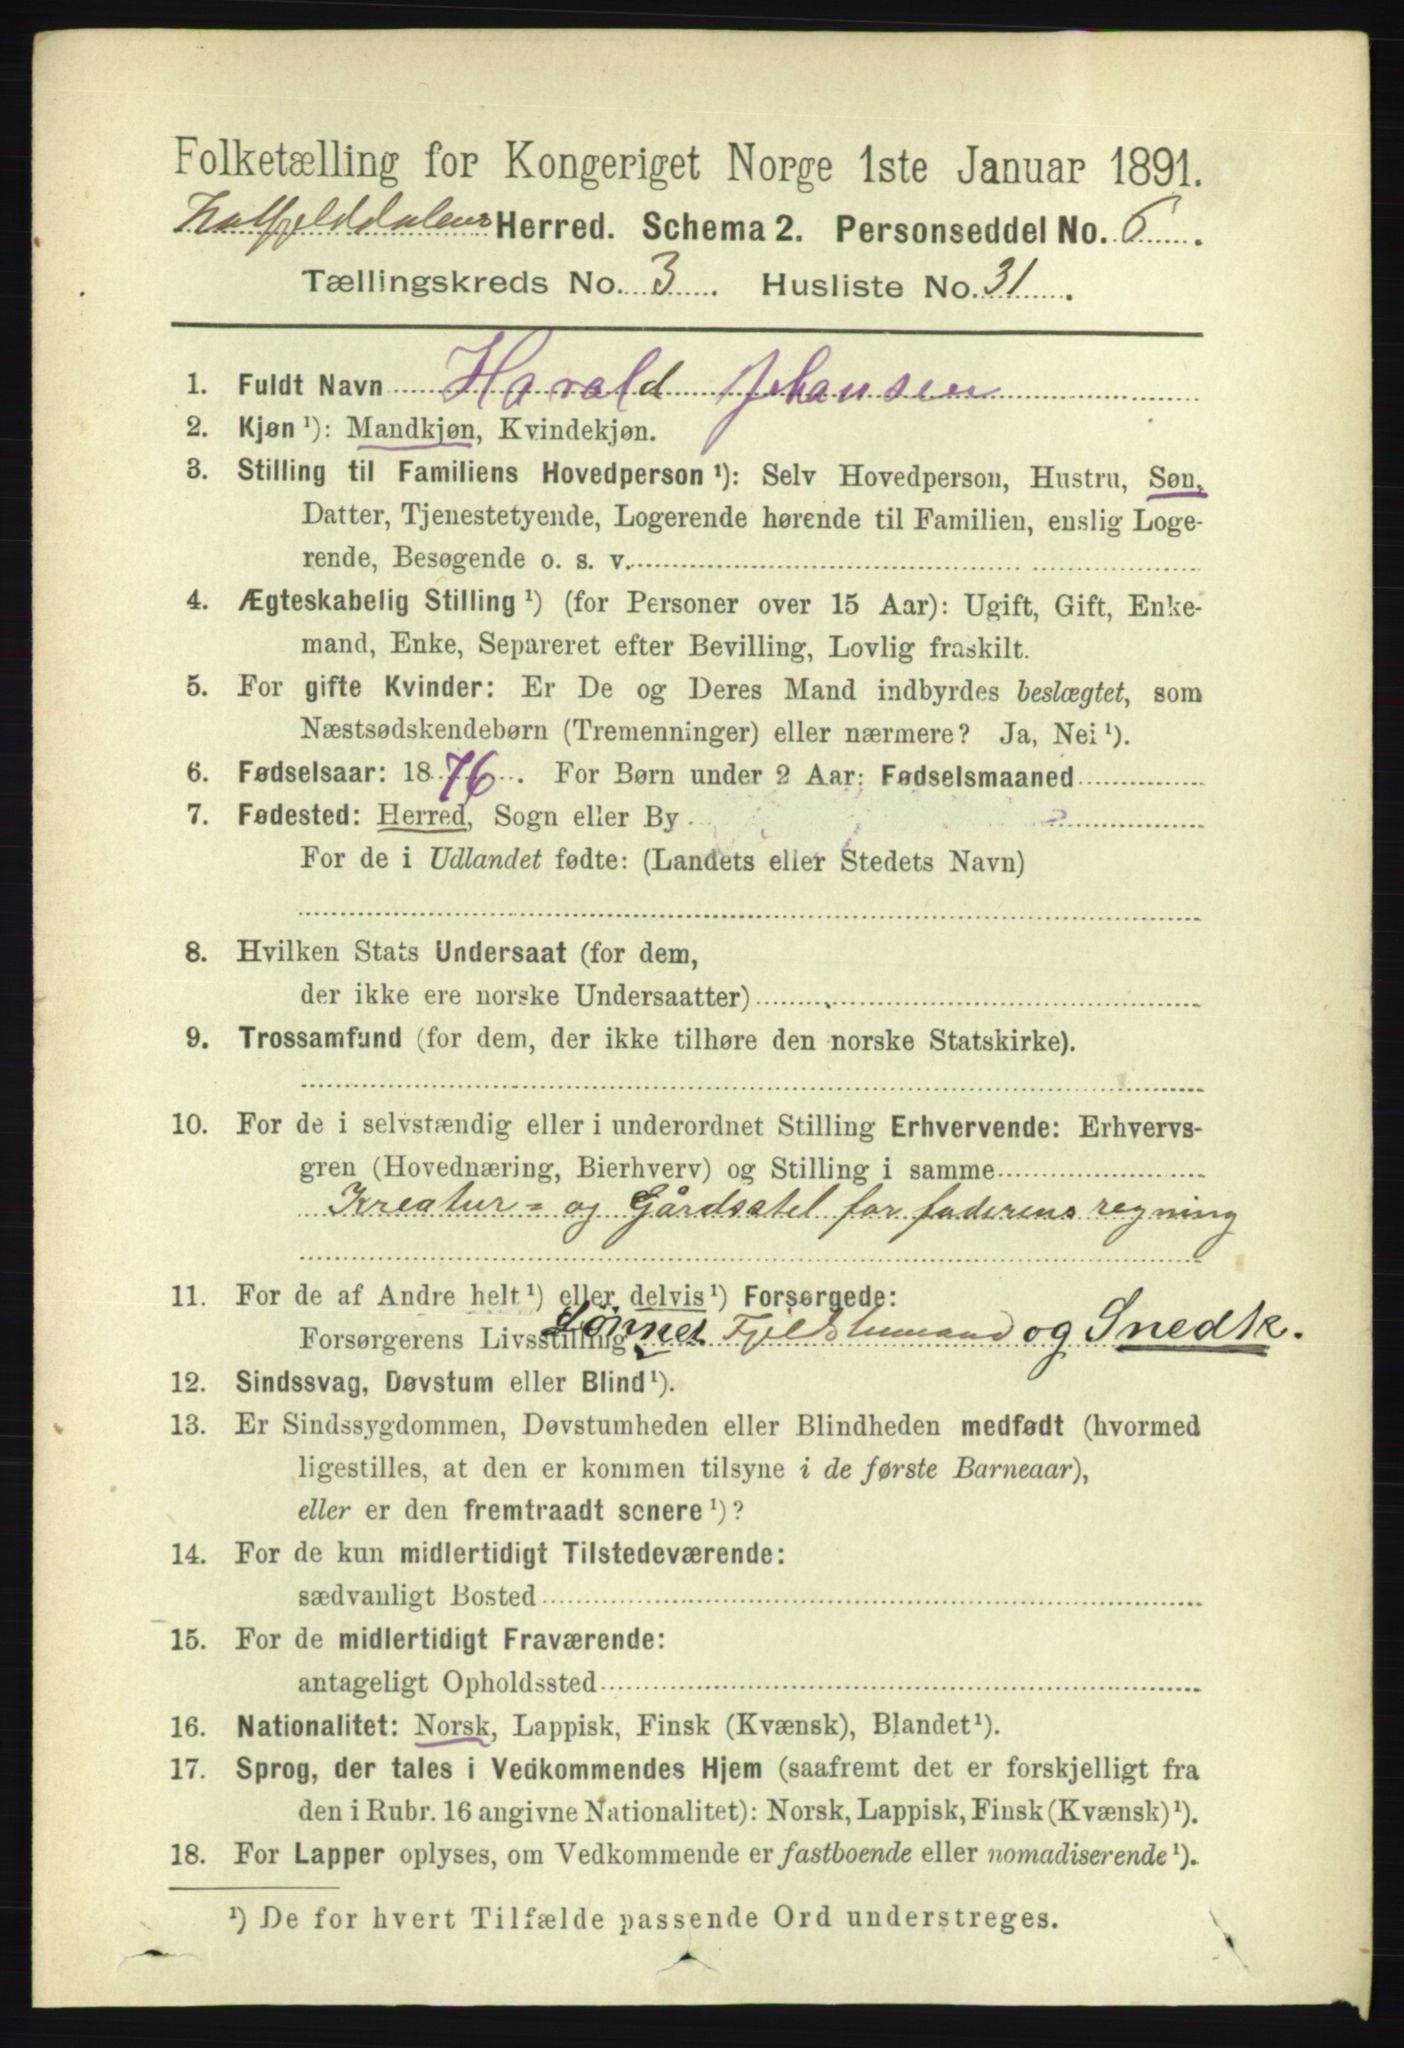 Folketælling for Kongeriget Norge 1ste Januar 1891.
Hatfjelddalens Herred. Schema 2. Personseddel No. 6.
Tællingskreds No. 3. Husliste No. 31.
1. Fuldt Navn Harald Johansen
2. Kjøn¹): Mandkjøn, Kvindekjøn.
3. Stilling til Familiens Hovedperson¹): Selv Hovedperson, Hustru, Søn,
Datter, Tjenestetyende, Logerende hørende til Familien, enslig Loge-
rende, Besøgende o. s. v.
4. Ægteskabelig Stilling¹) (for Personer over 15 Aar): Ugift, Gift, Enke-
mand, Enke, Separeret efter Bevilling, Lovlig fraskilt.
5. For gifte Kvinder: Er De og Deres Mand indbyrdes beslægtet, som
Næstsødskendebørn (Tremenninger) eller nærmere? Ja, Nei¹).
6. Fødselsaar: 1876. For Børn under 2 Aar: Fødselsmaaned
7. Fødested: Herred, Sogn eller By
For de i Udlandet fødte: (Landets eller Stedets Navn)
8. Hvilken Stats Undersaat (for dem,
der ikke ere norske Undersaatter)
9. Trossamfund (for dem, der ikke tilhøre den norske Statskirke).
10. For de i selvstændig eller i underordnet Stilling Erhvervende: Erhvervs-
gren (Hovednæring, Bierhverv) og Stilling i samme
Kreatur= og Gårdsstel for faderens regning
11. For de af Andre helt¹) eller delvis¹) Forsørgede:
Forsørgerens Livsstilling Lønnet og Snedk.
12. Sindssvag, Døvstum eller Blind¹).
13. Er Sindssygdommen, Døvstumheden eller Blindheden medfødt (hvormed
ligestilles, at den er kommen tilsyne i de første Barneaar),
eller er den fremtraadt senere¹)?
14. For de kun midlertidigt Tilstedeværende:
sædvanligt Bosted
15. For de midlertidigt Fraværende:
antageligt Opholdssted
16. Nationalitet: Norsk, Lappisk, Finsk (Kvænsk), Blandet¹).
17. Sprog, der tales i Vedkommendes Hjem (saafremt det er forskjelligt fra
den i Rubr. 16 angivne Nationalitet): Norsk, Lappisk, Finsk (Kvænsk)¹).
18. For Lapper oplyses, om Vedkommende er fastboende eller nomadiserende¹).
¹) De for hvert Tilfælde passende Ord understreges.